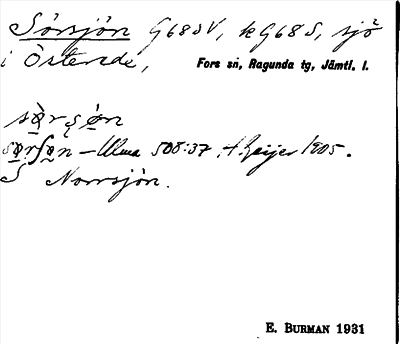 Sörsjön G68SV, kG68S, sjö
i Österede, Fors sn, Ragunda tg, Jämtl. l.
sørʂøn
sørʃøn – Ulma 508:37, H. Geijer 1905.
S Norrsjön.
E. BURMAN 1931